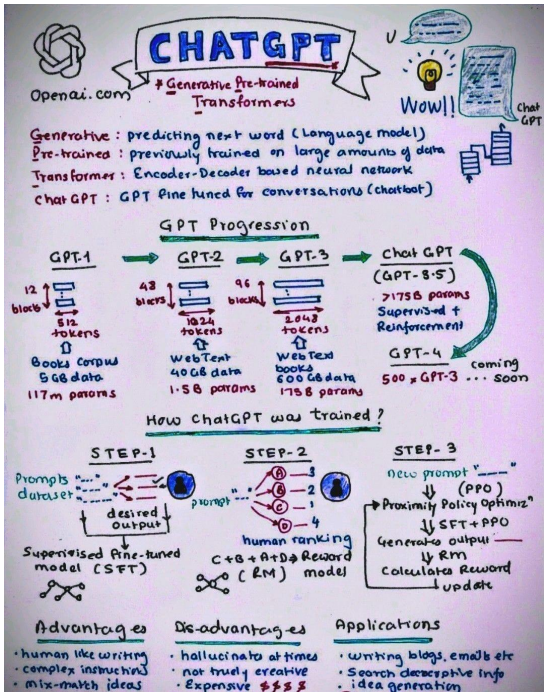 CHATGPT
Openai.com
* Generative Pre-trained
Transformers
U
Wow!!
Chat
GPT
Generative : predicting next word (Language model)
Pre-trained : previously trained on large amounts of data
Transformer : Encoder-Decoder based neural network
Chat GPT : GPT fine tuned for conversations (chatbot)
GPT Progression
GPT-1
12
blocks
512
tokens
Books Corpus
5 GB data
117m params
GPT-2
48
blocks
1024
tokens
WebText
40 GB data
1.5B params
GPT-3
96
blocks
2048
tokens
WebText
books
600 GB data
175B params
Chat GPT
(GPT-3.5)
>175B params
Supervised +
Reinforcement
GPT-4
500 x GPT-3
coming
... soon
How ChatGPT was trained?
STEP-1
Prompts
dataset
desired
output
Supervised fine-tuned
model (SFT)
STEP-2
prompt
A 3
B 2
C 1
D 4
human ranking
C+B+A+D → Reward
(RM) model
STEP-3
new prompt "——"
(PPO)
Proximity Policy Optimizn
SFT + PPO
Generates output
RM
Calculates Reward
update
Advantages
• human like writing
• complex instructions
• mix-match ideas
Dis-advantages
• hallucinate at times
• not truely creative
• Expensive $$$$
Applications
• writing blogs, emails etc
• Search descriptive info
• idea generation